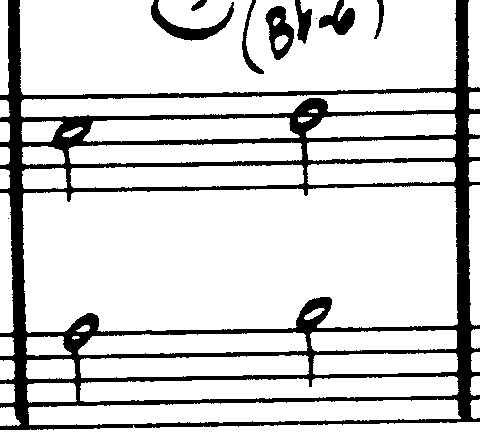 (B♭-6)